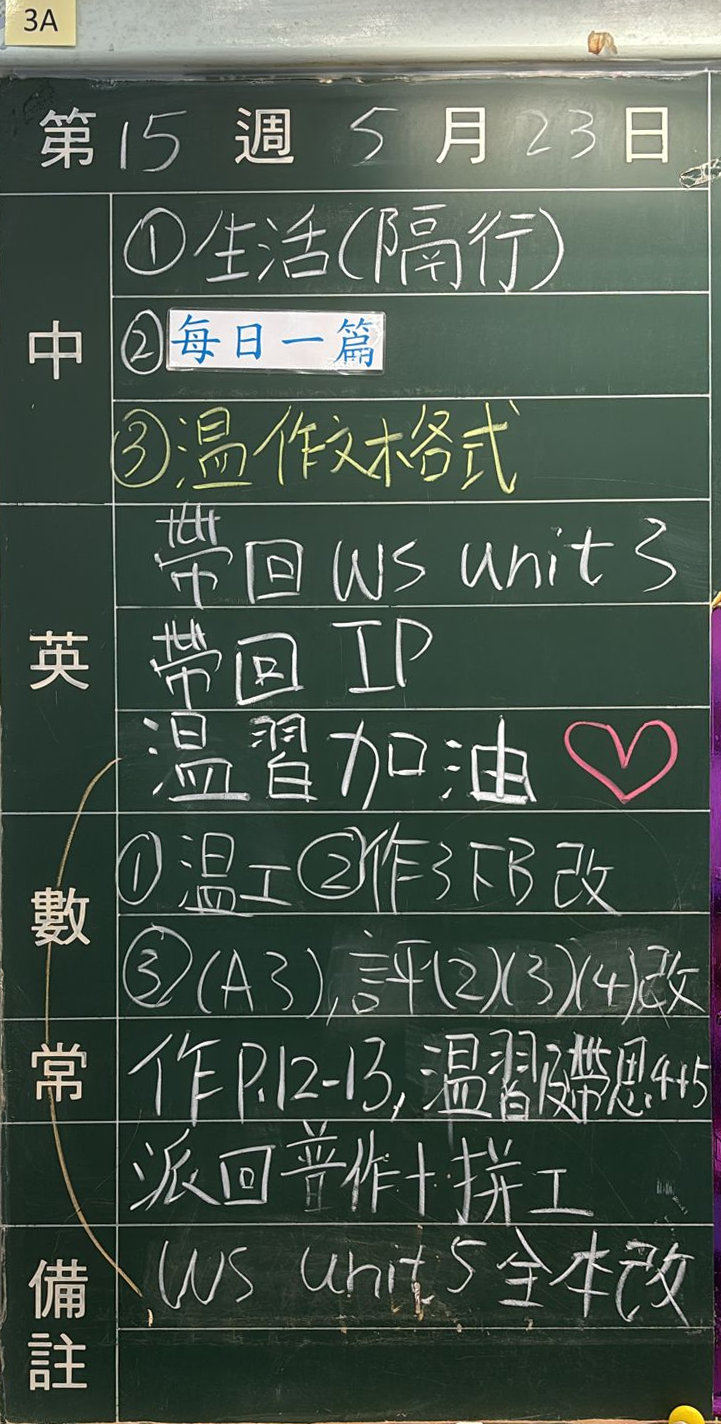 3A
第15週 5月23日
中
①生活(隔行)
②每日一篇
③溫作文格式
英
帶回 WS unit 3
帶回 IP
溫習加油
數
①溫工②作3下B改
③(A3),評(2)(3)(4)改
常
作P.12-13,溫習及帶思4+5
派回普作+拼工
備註
WS unit 5 全本改